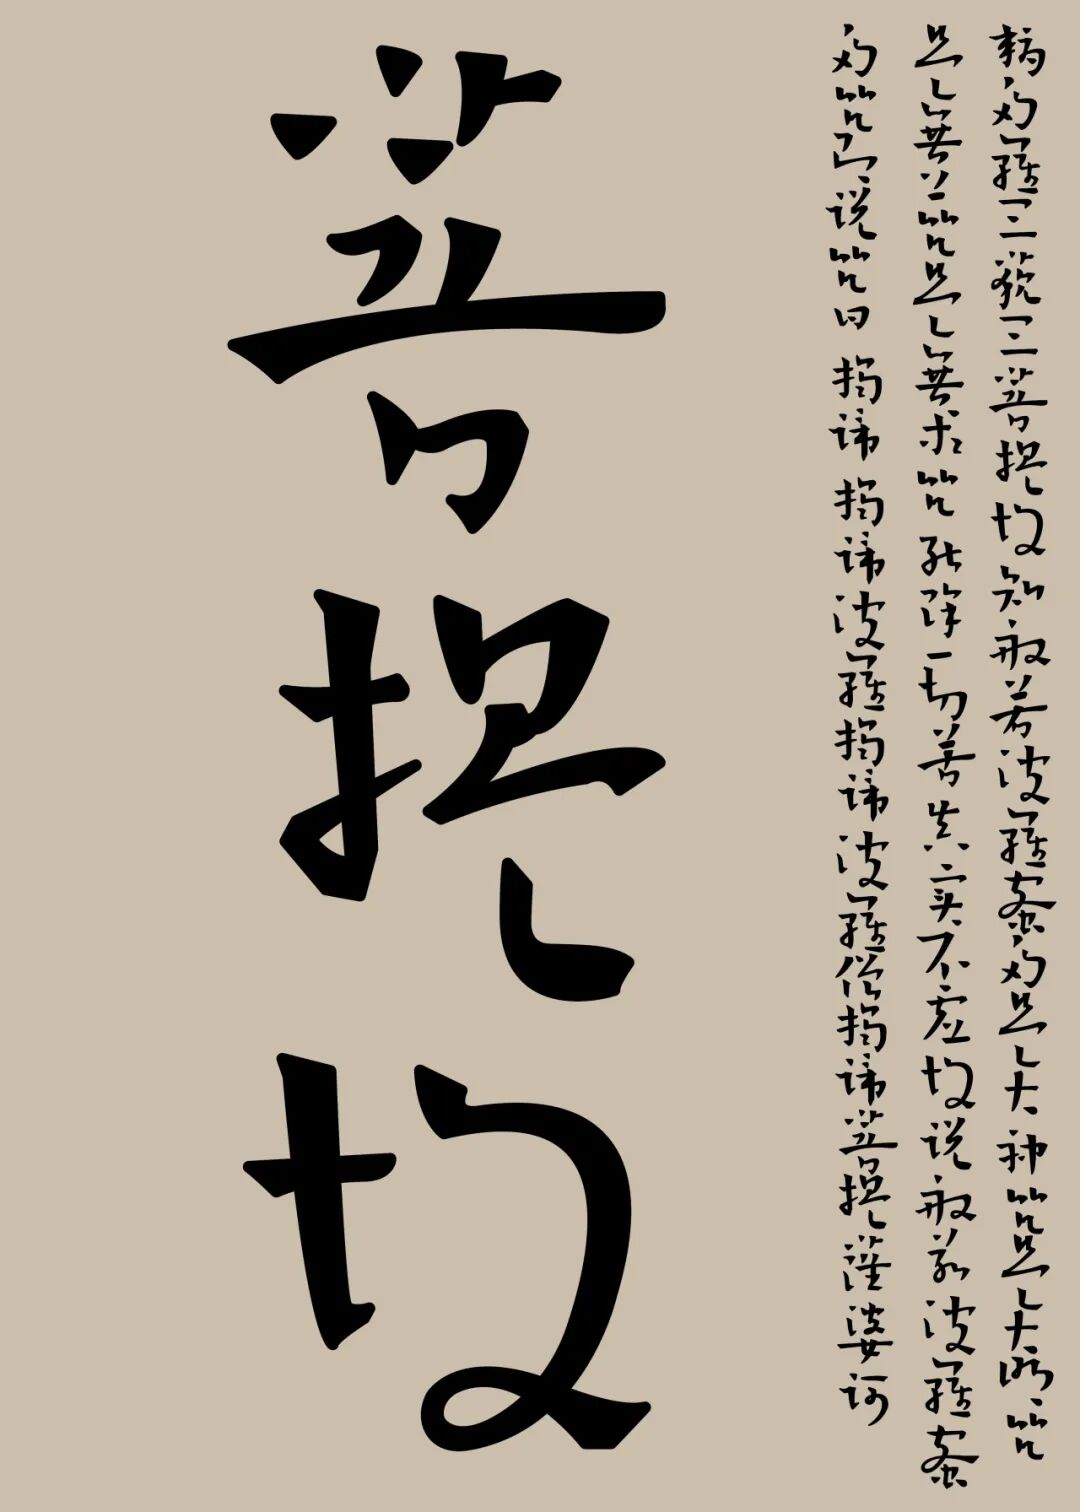 耨多羅三藐三菩提故知般若波羅蜜多是大神咒是大明咒
是無上咒是無等等咒能除一切苦真实不虚故说般若波羅蜜
多咒即说咒曰 揭谛 揭谛 波羅揭谛 波羅僧揭谛 菩提薩婆诃
菩提故